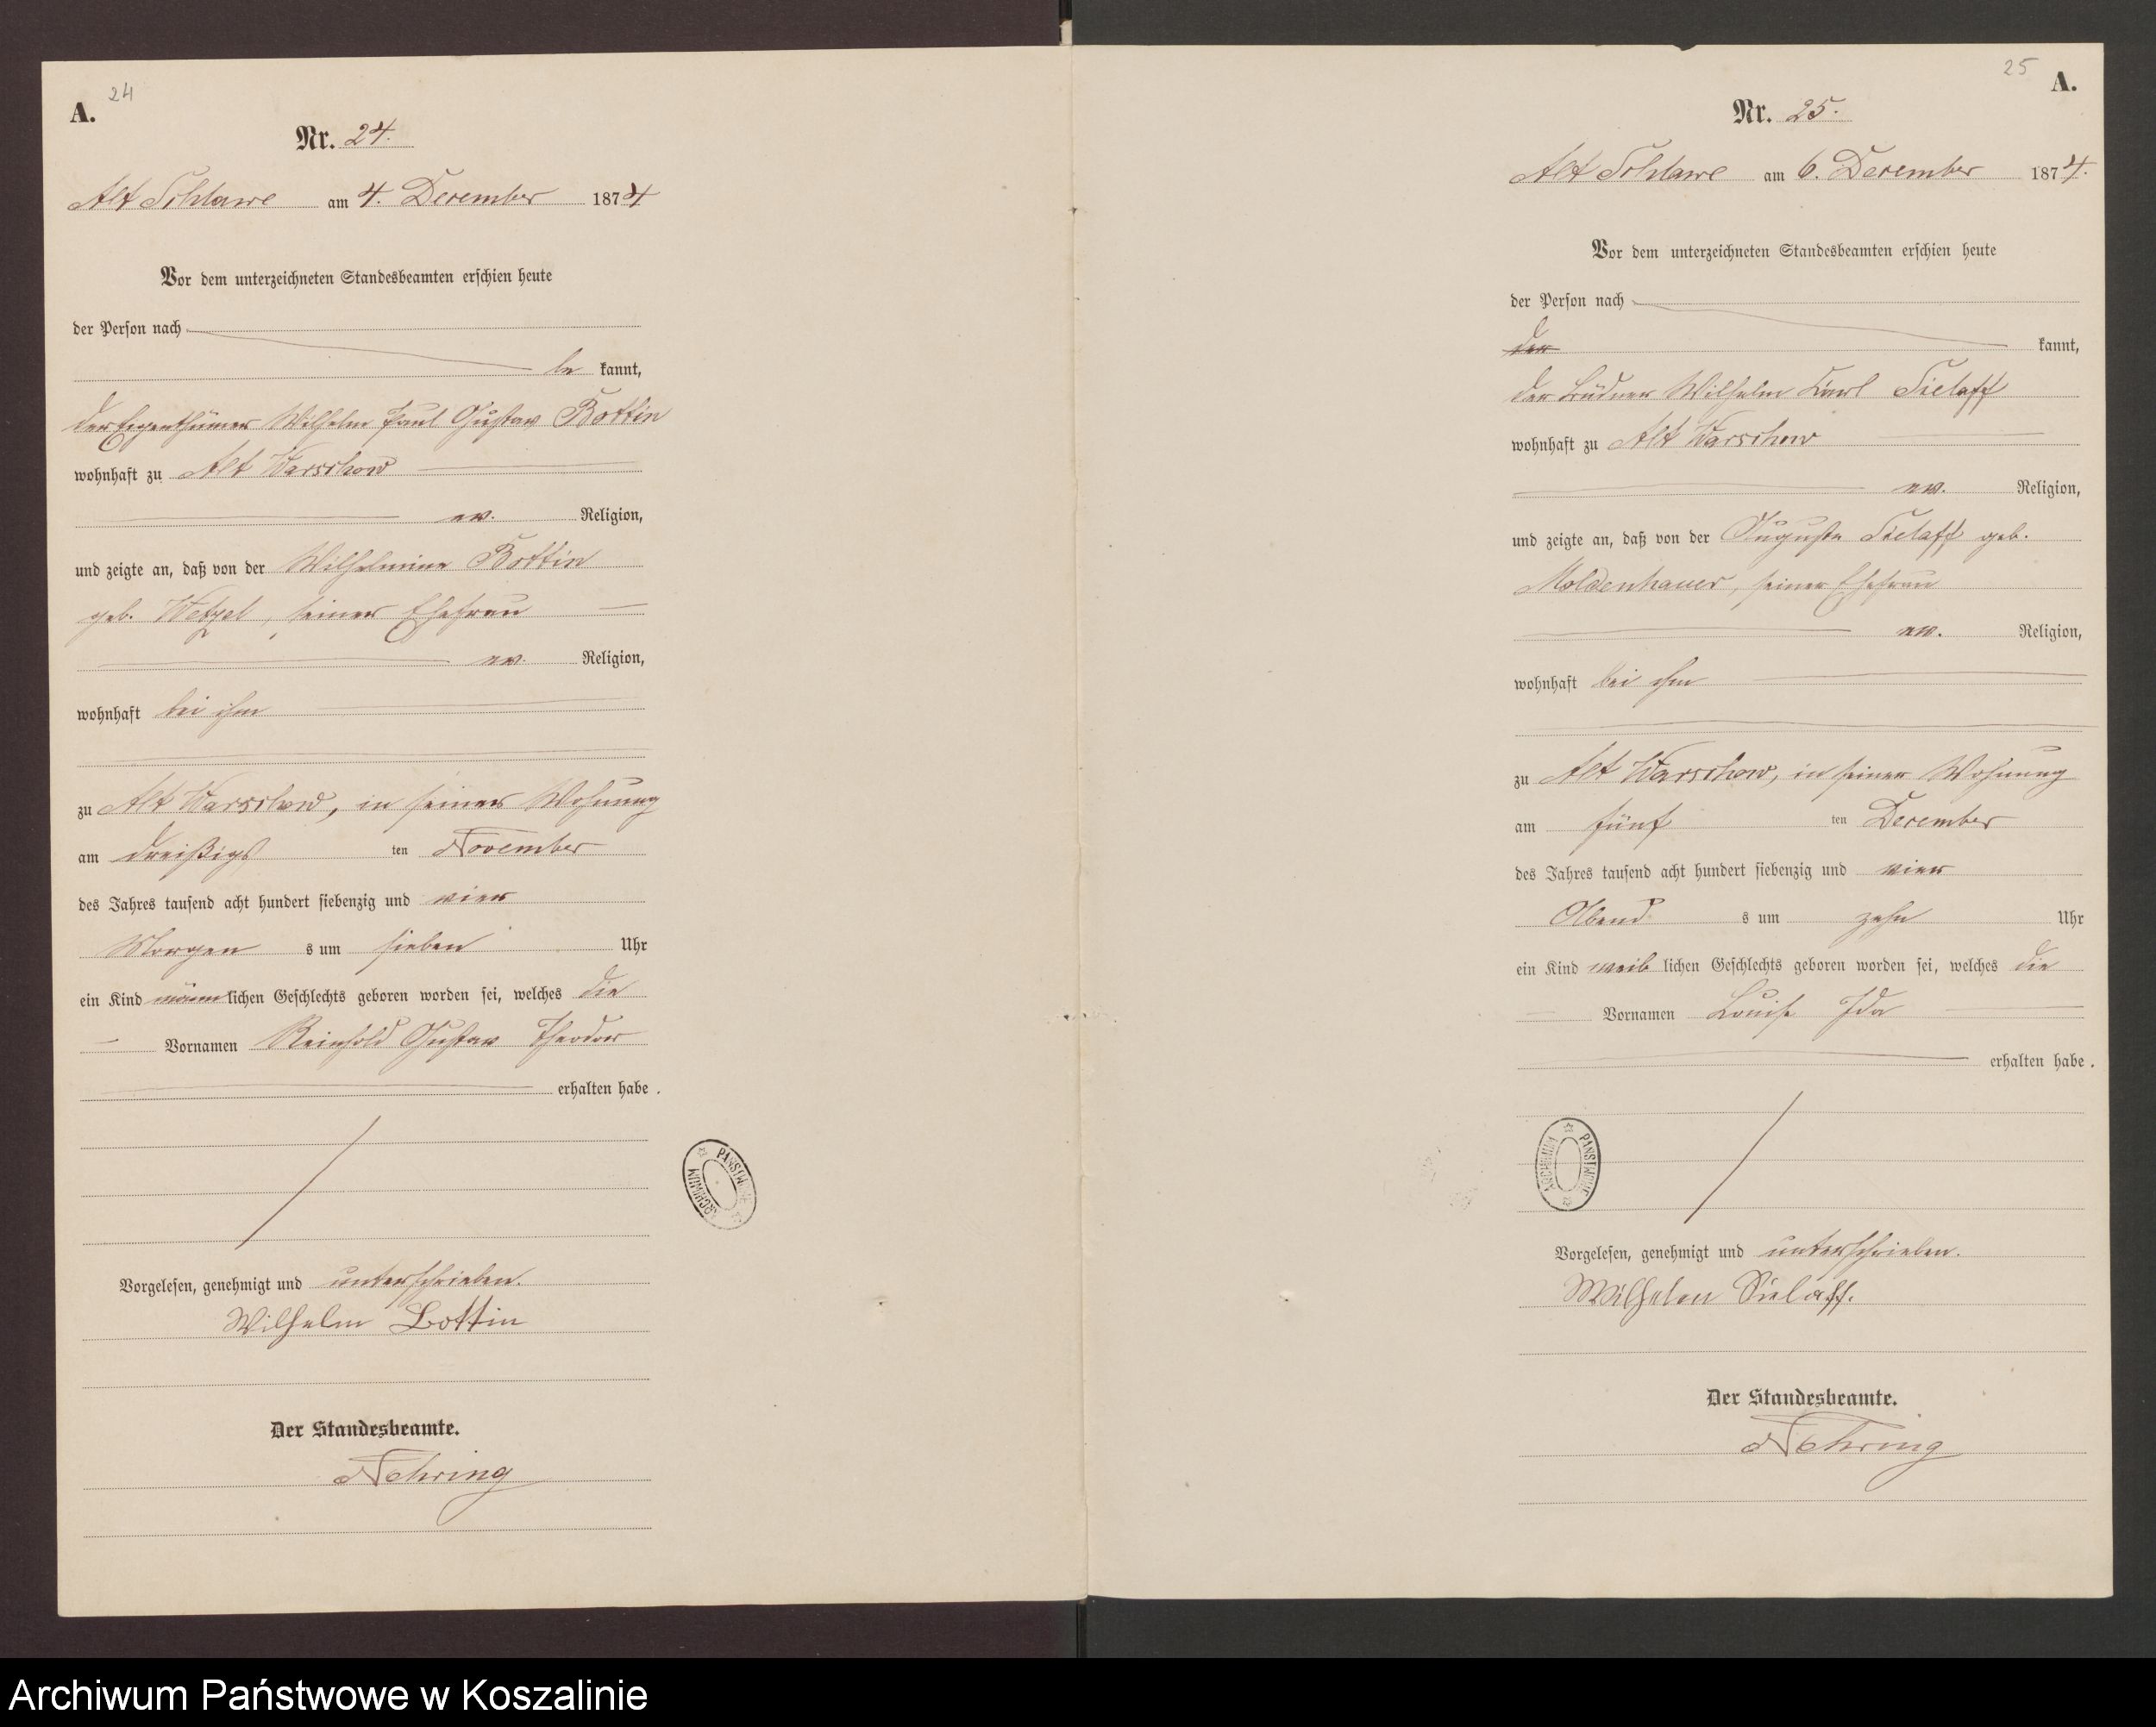 24
A.
Nr. 24.
Alt Schlawe am 4. December 1874
Vor dem unterzeichneten Standesbeamten erschien heute
der Person nach
be kannt,
der Eigenthümer Wilhelm Paul Gustav Bottin
wohnhaft zu Alt Warschow
ev. Religion,
und zeigte an, daß von der Wilhelmine Bottin
geb. Wetzel, seiner Ehefrau
ev. Religion,
wohnhaft bei ihm
zu Alt Warschow, in seiner Wohnung
am dreißigs ten November
des Jahres tausend acht hundert siebenzig und vier
Morgen s um sieben Uhr
ein Kind männ lichen Geschlechts geboren worden sei, welches die
Vornamen Reinhold Gustav Theodor
erhalten habe.
Vorgelesen, genehmigt und unterschrieben.
Wilhelm Bottin
Der Standesbeamte.
Nehring
ARCHIWUM PAŃSTWOWE
25
A.
Nr. 25.
Alt Schlawe am 6. December 1874.
Vor dem unterzeichneten Standesbeamten erschien heute
der Person nach
der kannt,
der Büdner Wilhelm Karl Sielaff
wohnhaft zu Alt Warschow
ev. Religion,
und zeigte an, daß von der Auguste Sielaff geb.
Moldenhauer, seiner Ehefrau
ev. Religion,
wohnhaft bei ihm
zu Alt Warschow, in seiner Wohnung
am fünf ten December
des Jahres tausend acht hundert siebenzig und vier
Abend s um zehn Uhr
ein Kind weib lichen Geschlechts geboren worden sei, welches die
Vornamen Louise Ida
erhalten habe.
ARCHIWUM PAŃSTWOWE
Vorgelesen, genehmigt und unterschrieben.
Wilhelm Sielaff.
Der Standesbeamte.
Nehring
Archiwum Państwowe w Koszalinie